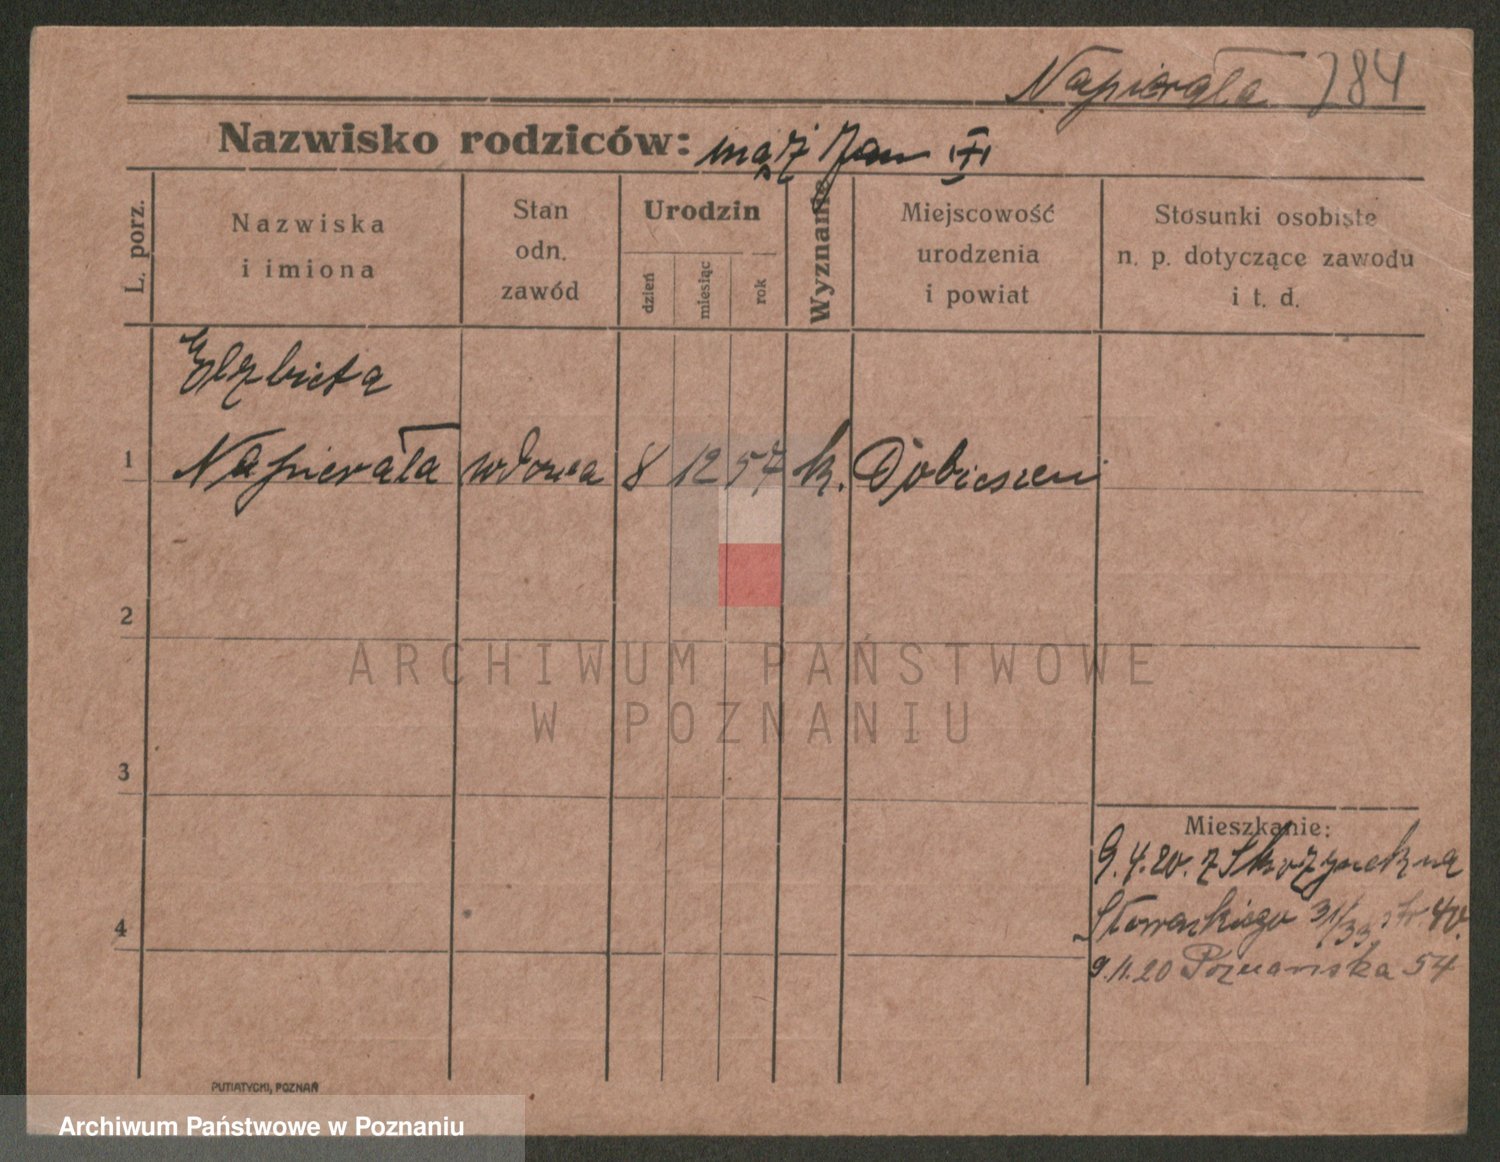 Napierała 784
Nazwisko rodziców: mąż Jan
L. porz.
Nazwiska
i imiona
Stan
odn.
zawód
Urodzin
dzień
miesiąc
rok
Wyznanie
Miejscowość
urodzenia
i powiat
Stosunki osobiste
n. p. dotyczące zawodu
i t. d.
Elzbieta
1 Napierała wdowa 8 12 57 k.
2
3
4
Mieszkanie:
9.4.20. z
Słowackiego 31/33,
9.11.20 Poznanska 54
PUTIATYCKI, POZNAŃ
ARCHIWUM PAŃSTWOWE
W POZNANIU
Archiwum Państwowe w Poznaniu